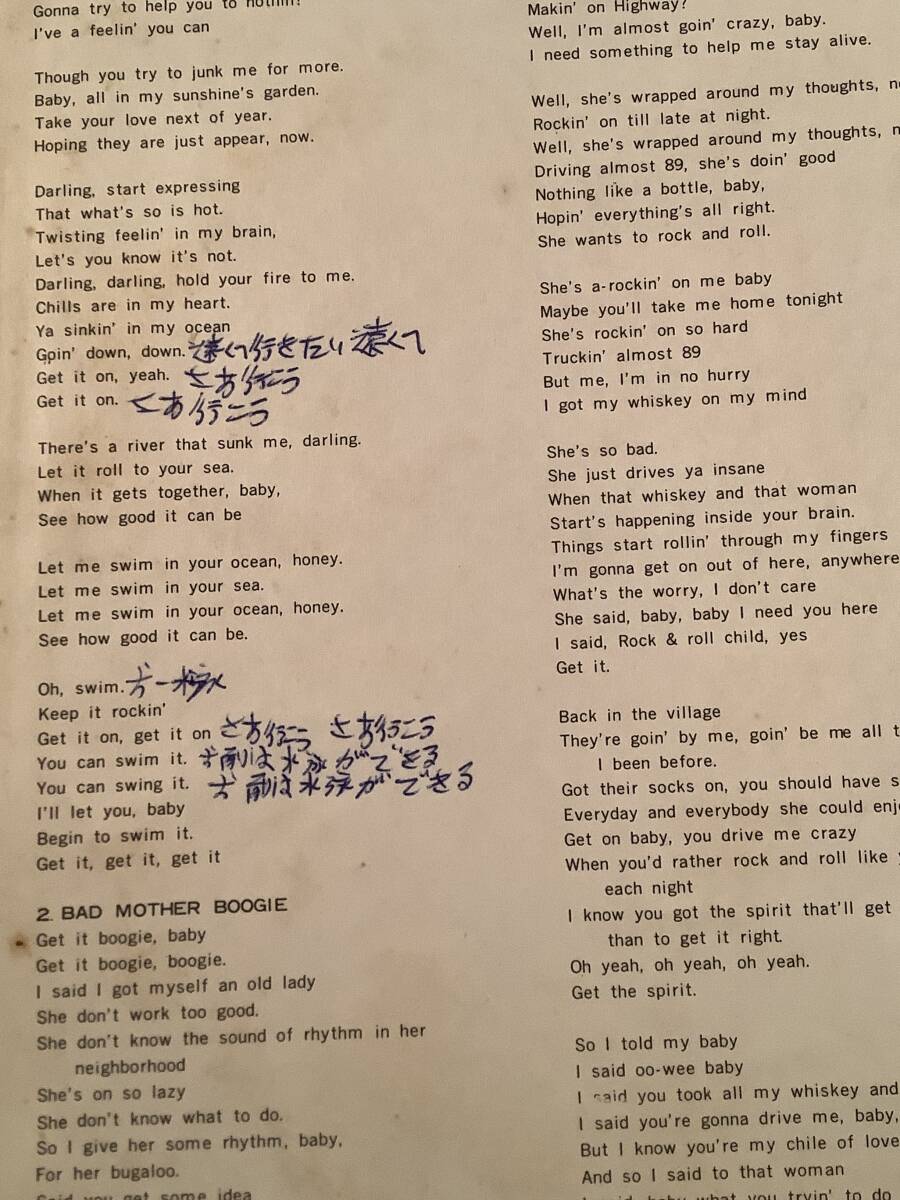 Gonna try to help you to nothin'!
I've a feelin' you can
Though you try to junk me for more.
Baby, all in my sunshine's garden.
Take your love next of year.
Hoping they are just appear, now.
Darling, start expressing
That what's so is hot.
Twisting feelin' in my brain,
Let's you know it's not.
Darling, darling, hold your fire to me.
Chills are in my heart.
Ya sinkin' in my ocean
Goin' down, down. 遠くへ行きたい 遠くへ
Get it on, yeah. さあ行こう
Get it on. さあ行こう
There's a river that sunk me, darling.
Let it roll to your sea.
When it gets together, baby,
See how good it can be
Let me swim in your ocean, honey.
Let me swim in your sea.
Let me swim in your ocean, honey.
See how good it can be.
Oh, swim.
Keep it rockin'
Get it on, get it on さあ行こう さあ行こう
You can swim it. 前は水泳ができる
You can swing it. 前は水泳ができる
I'll let you, baby
Begin to swim it.
Get it, get it, get it
2. BAD MOTHER BOOGIE
Get it boogie, baby
Get it boogie, boogie.
I said I got myself an old lady
She don't work too good.
She don't know the sound of rhythm in her
neighborhood
She's on so lazy
She don't know what to do.
So I give her some rhythm, baby,
For her bugaloo.
Said you get some idea
Makin' on Highway?
Well, I'm almost goin' crazy, baby.
I need something to help me stay alive.
Well, she's wrapped around my thoughts,
Rockin' on till late at night.
Well, she's wrapped around my thoughts,
Driving almost 89, she's doin' good
Nothing like a bottle, baby,
Hopin' everything's all right.
She wants to rock and roll.
She's a-rockin' on me baby
Maybe you'll take me home tonight
She's rockin' on so hard
Truckin' almost 89
But me, I'm in no hurry
I got my whiskey on my mind
She's so bad.
She just drives ya insane
When that whiskey and that woman
Start's happening inside your brain.
Things start rollin' through my fingers
I'm gonna get on out of here, anywhere
What's the worry, I don't care
She said, baby, baby I need you here
I said, Rock & roll child, yes
Get it.
Back in the village
They're goin' by me, goin' be me all
I been before.
Got their socks on, you should have
Everyday and everybody she could
Get on baby, you drive me crazy
When you'd rather rock and roll like
each night
I know you got the spirit that'll get
than to get it right.
Oh yeah, oh yeah, oh yeah.
Get the spirit.
So I told my baby
I said oo-wee baby
I said you took all my whiskey and
I said you're gonna drive me, baby,
But I know you're my chile of love
And so I said to that woman
I said, baby what you tryin' to do